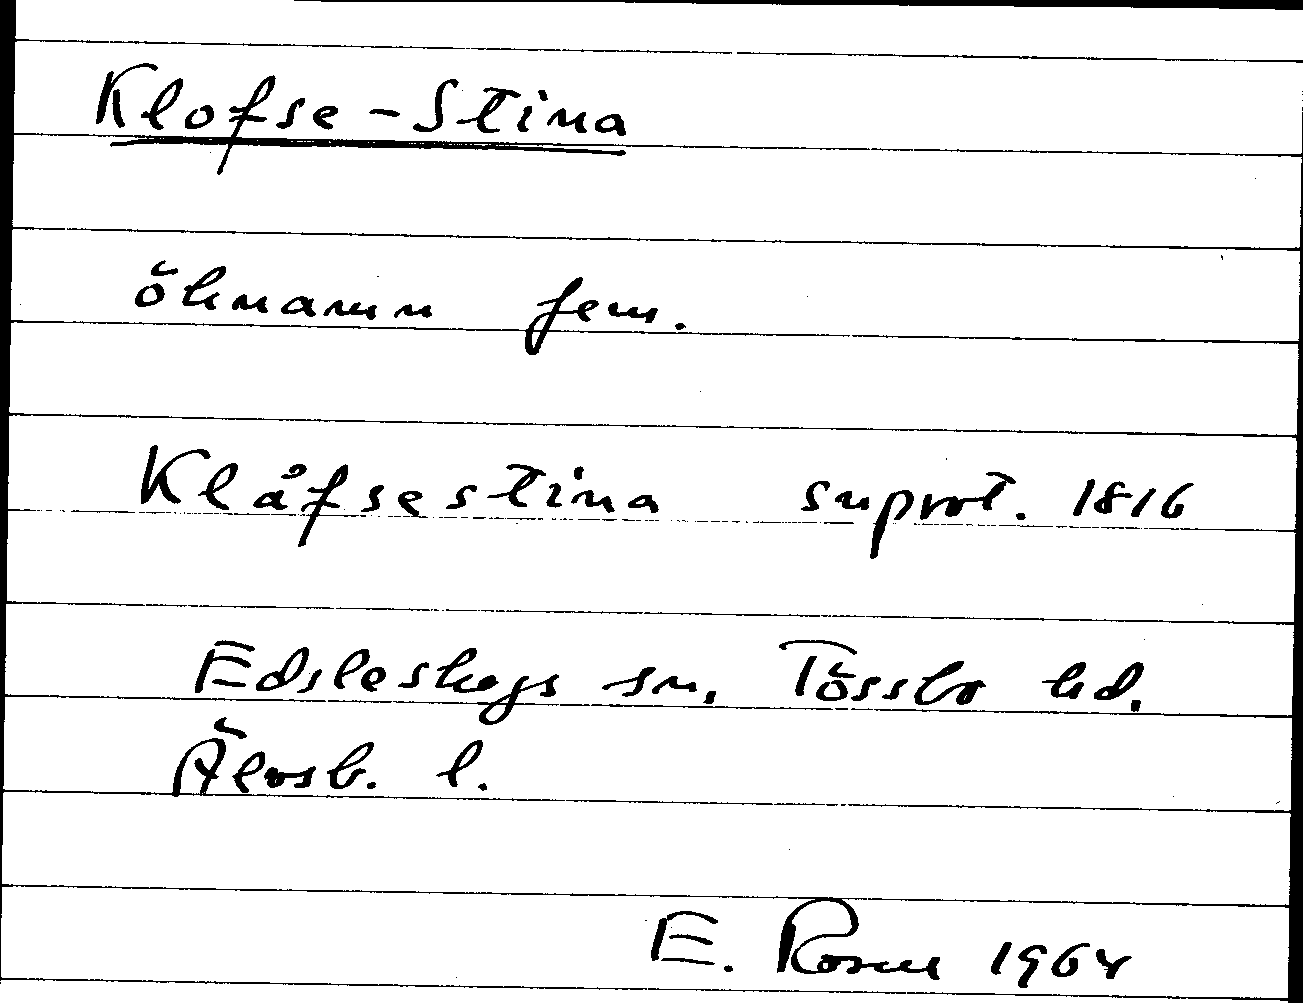 Klofse-Stina
öknamn fem.
Klåfsestina snprot. 1816
Edsleskogs sn, Tössbo hd.
Älvsb. l.
E. Rosen 1964